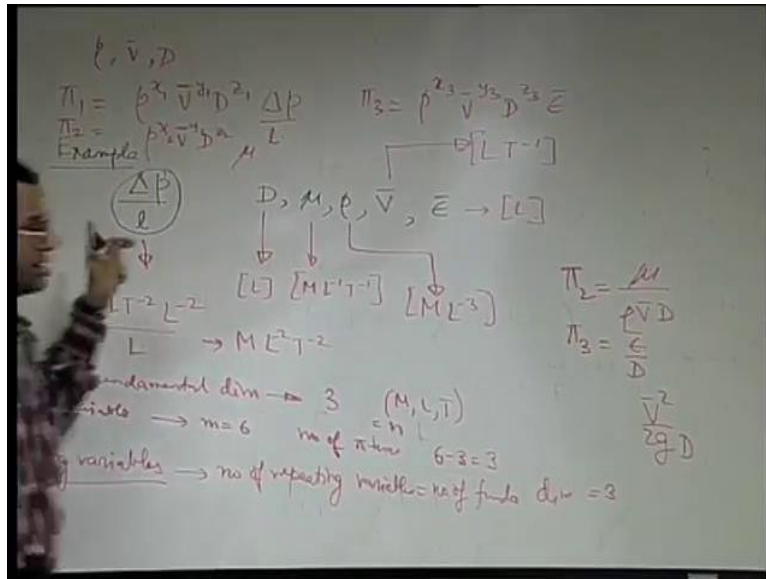 ρ, V̄, D
π₁ = ρ^x₁ V̄^y₁ D^z₁ Δp/L
π₃ = ρ^x₃ V̄^y₃ D^z₃ ε̄
π₂ = ρ^x₂ V̄^y₂ D^z₂ μ
[LT⁻¹]
Example
Δp/l
D, μ, ρ, V̄, ε̄ → [L]
[L] [ML⁻¹T⁻¹] [ML⁻³]
LT⁻² L⁻²/L → ML⁻²T⁻²
π₂ = μ/ρV̄D
π₃ = ε/D
V̄²/2gD
fundamental dim → 3 (M, L, T) = n
→ m=6 no of π 6-3=3
variables → no of repeating variables = no of funda dim = 3